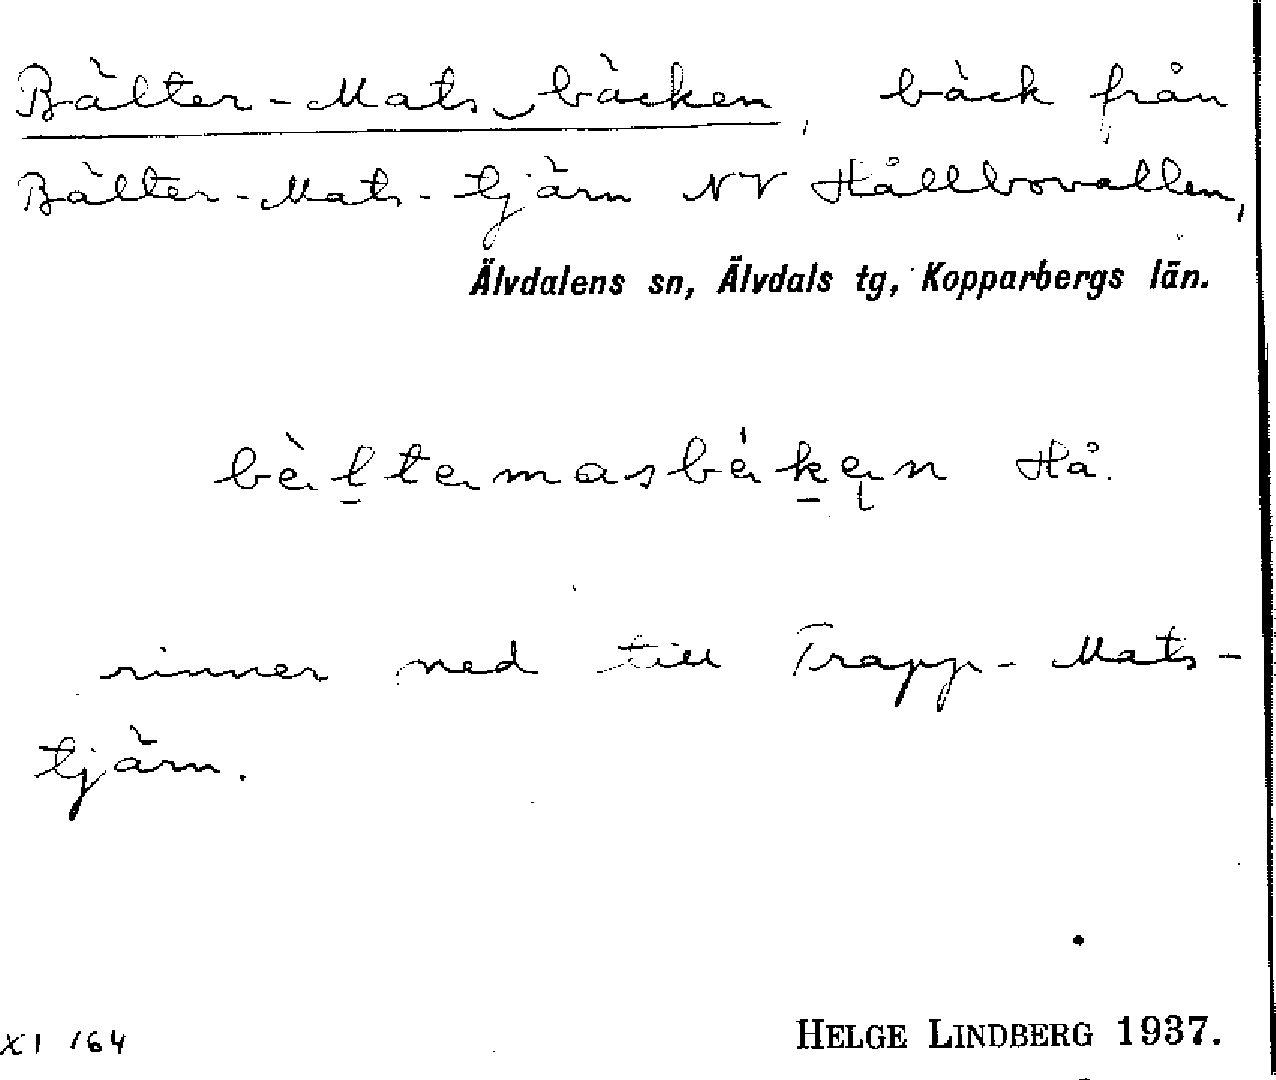 Bälter-Mats‿bäcken, bäck från
Bälter-Mats-tjärn NV Hållbovallen,
Älvdalens sn, Älvdals tg, Kopparbergs län.
Hå.
rinner ned till Trapp-Mats-
tjärn.
XI 164
HELGE LINDBERG 1937.